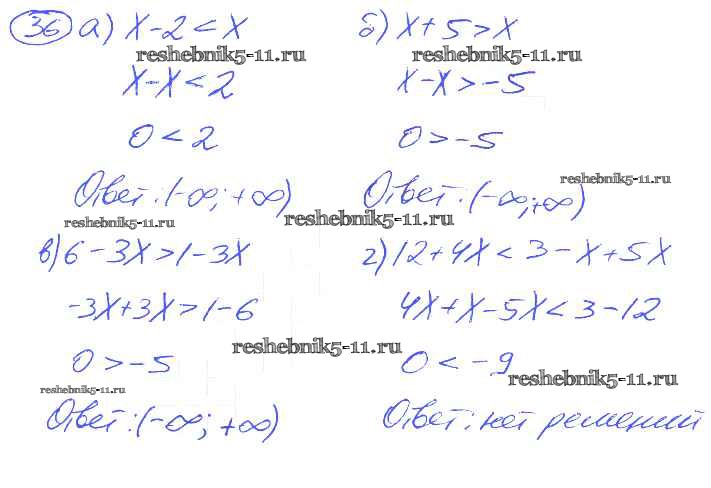 36 а) x-2<x б) x+5>x
reshebnik5-11.ru reshebnik5-11.ru
x-x<2 x-x>-5
0<2 0>-5
reshebnik5-11.ru
Ответ: (-∞; +∞) Ответ: (-∞; +∞)
reshebnik5-11.ru reshebnik5-11.ru
в) 6-3x>1-3x г) 12+4x<3-x+5x
-3x+3x>1-6 4x+x-5x<3-12
reshebnik5-11.ru
0>-5 0<-9
reshebnik5-11.ru reshebnik5-11.ru
Ответ: (-∞; +∞) Ответ: нет решений